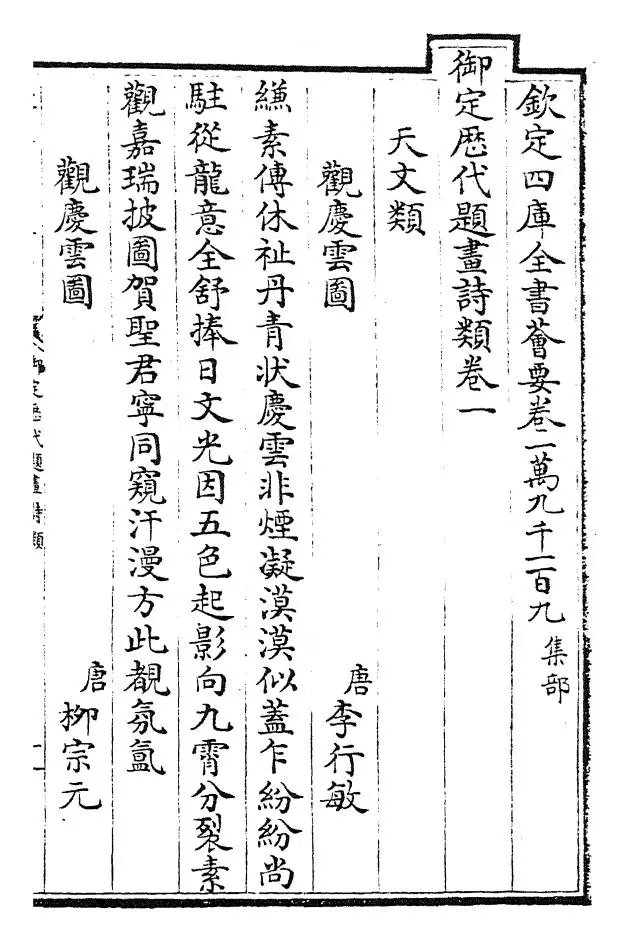 欽定四庫全書薈要卷二萬九千一百九 集部
御定歴代題畫詩類卷一
天文類
觀慶雲圖 唐 李行敏
縑素傳休祉丹青狀慶雲非煙凝漠漠似蓋乍紛紛尚
駐從龍意全舒捧日文光因五色起影向九霄分裂素
觀嘉瑞披圖賀聖君寧同窺汗漫方此覩氛氲
觀慶雲圖 唐 柳宗元
御定歴代題畫詩類